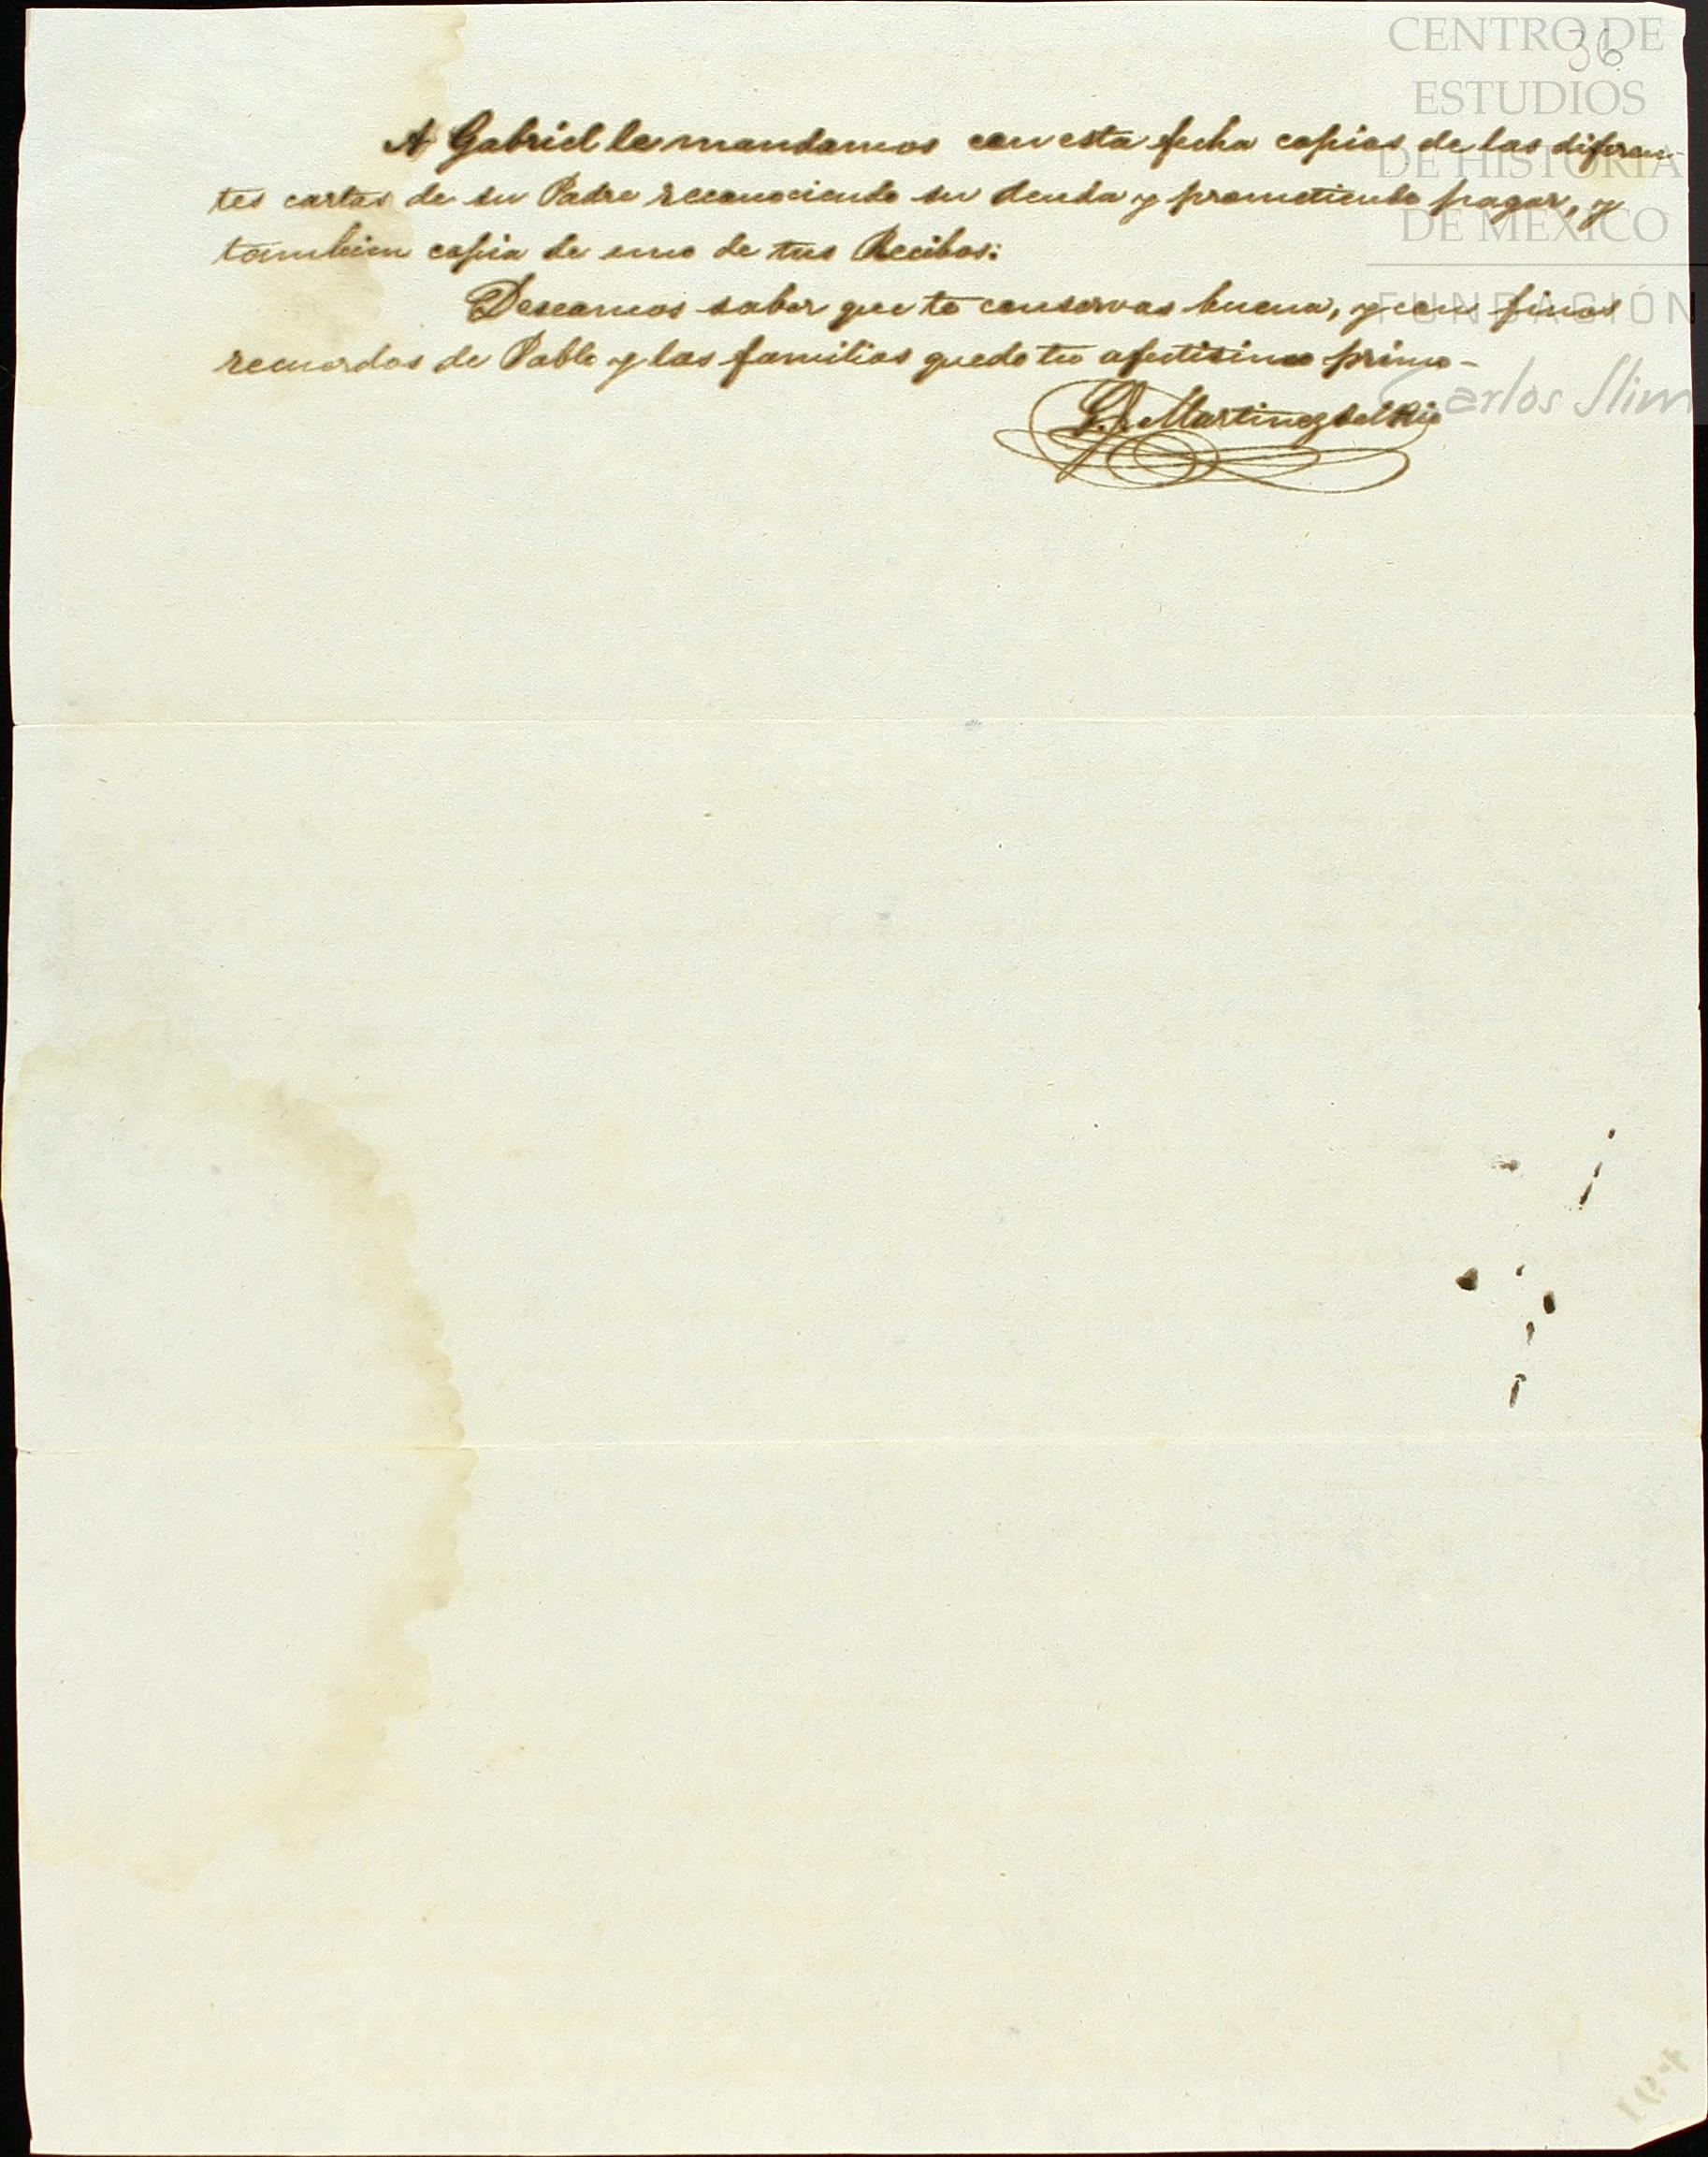 CENTRO DE
36
ESTUDIOS
DE HISTORIA
DE MÉXICO
FUNDACIÓN
Carlos Slim
A Gabriel le mandamos con esta fecha copias de las diferen-
tes cartas de su Padre reconociendo su deuda y prometiendo pagar, y
tambien copia de uno de tus Recibos:
Deseamos saber que te conservas buena, y con finos
recuerdos de Pablo y las familias quedo tu afectisimo primo-
G. Martinez del Rio